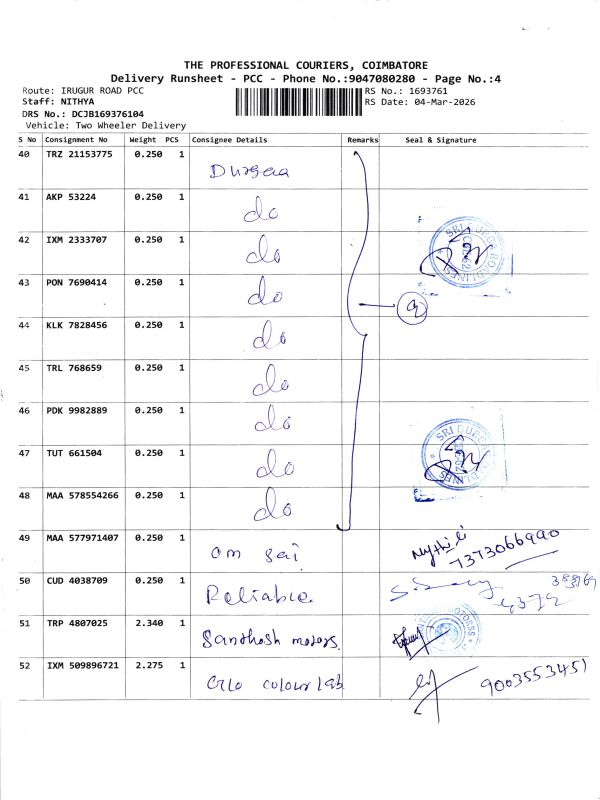 THE PROFESSIONAL COURIERS, COIMBATORE
Delivery Runsheet - PCC - Phone No.:9047080280 - Page No.:4
Route: IRUGUR ROAD PCC
RS No.: 1693761
Staff: NITHYA
RS Date: 04-Mar-2026
DRS No.: DCJB169376104
Vehicle: Two Wheeler Delivery
S No Consignment No Weight PCS Consignee Details Remarks Seal & Signature
40 TRZ 21153775 0.250 1 Durgaa
41 AKP 53224 0.250 1 do
42 IXM 2333707 0.250 1 do
43 PON 7690414 0.250 1 do 9
44 KLK 7828456 0.250 1 do
45 TRL 768659 0.250 1 do
46 PDK 9982889 0.250 1 do
47 TUT 661504 0.250 1 do
48 MAA 578554266 0.250 1 do
49 MAA 577971407 0.250 1 om sai Mythili 7373066990
50 CUD 4038709 0.250 1 Reliable.
51 TRP 4807025 2.340 1 Santhosh motors.
52 IXM 509896721 2.275 1 colour lab 9003553451
SRI DURGA ROADLINES
SRI DURGA